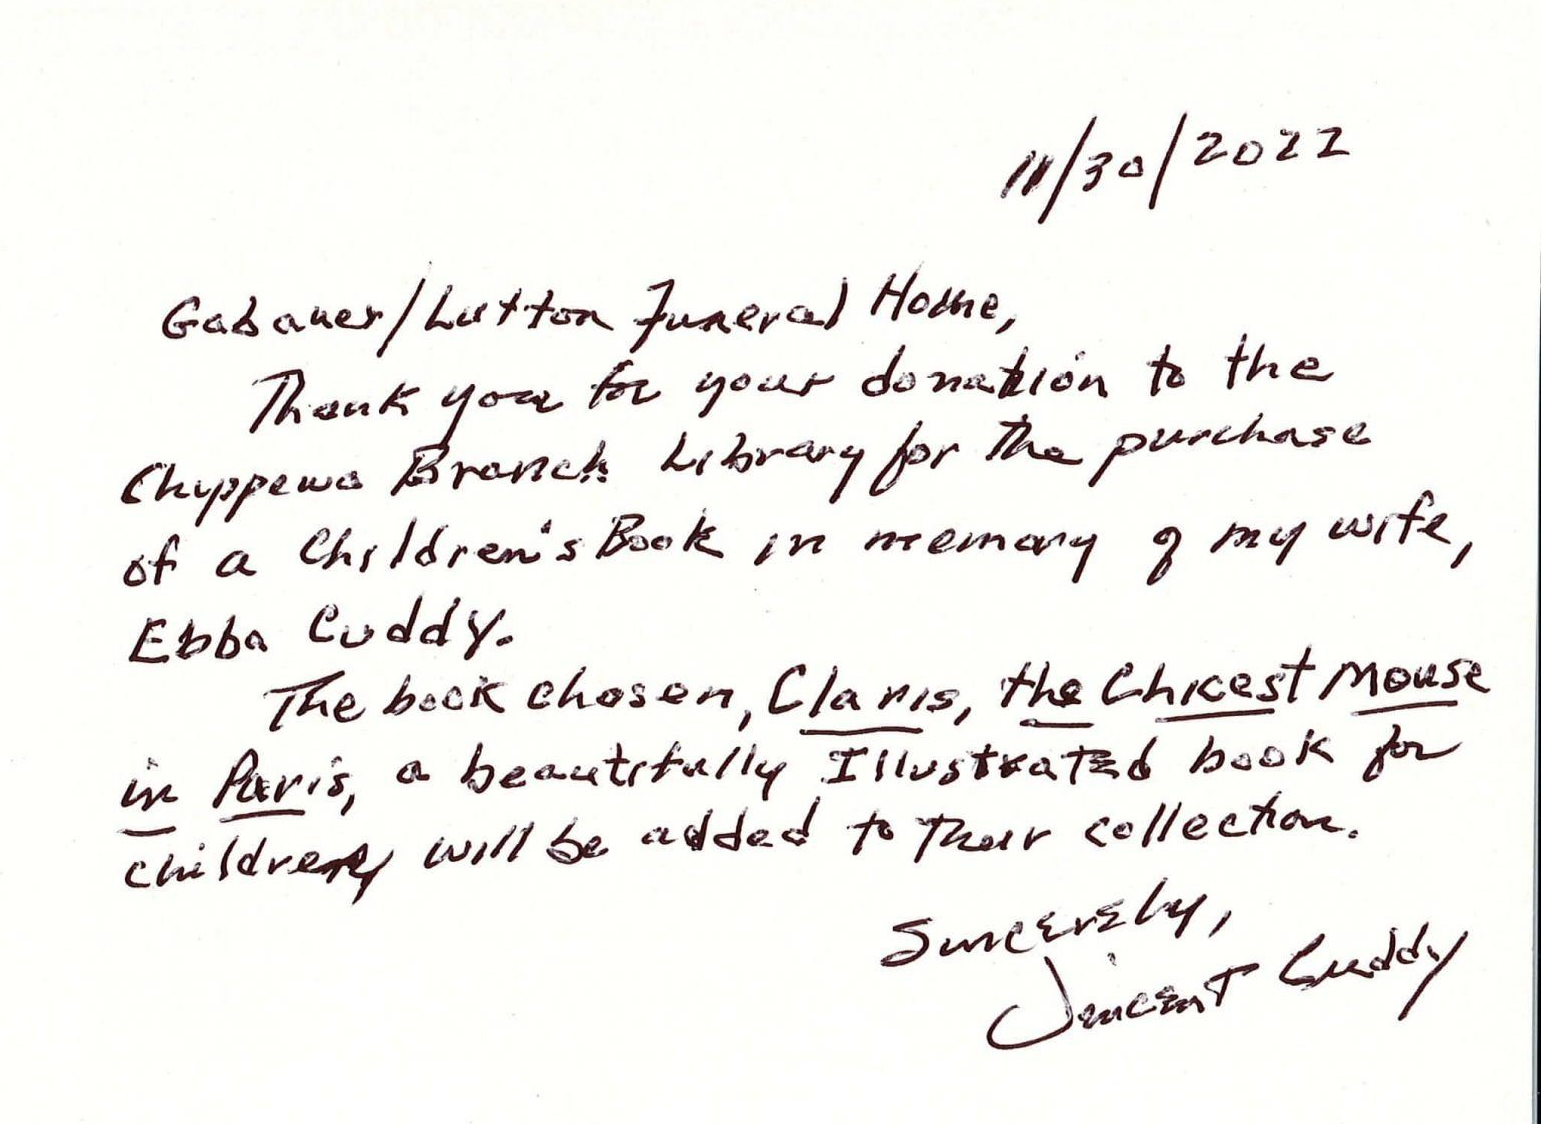 11/30/2022
Gabauer/Lutton Funeral Home,
Thank you for your donation to the
Chippewa Branch Library for the purchase
of a Children's Book in memory of my wife,
Ebba Cuddy.
The book chosen, Claris, the Chicest Mouse
in Paris, a beautifully Illustrated book for
children, will be added to their collection.
Sincerely,
Vincent Cuddy